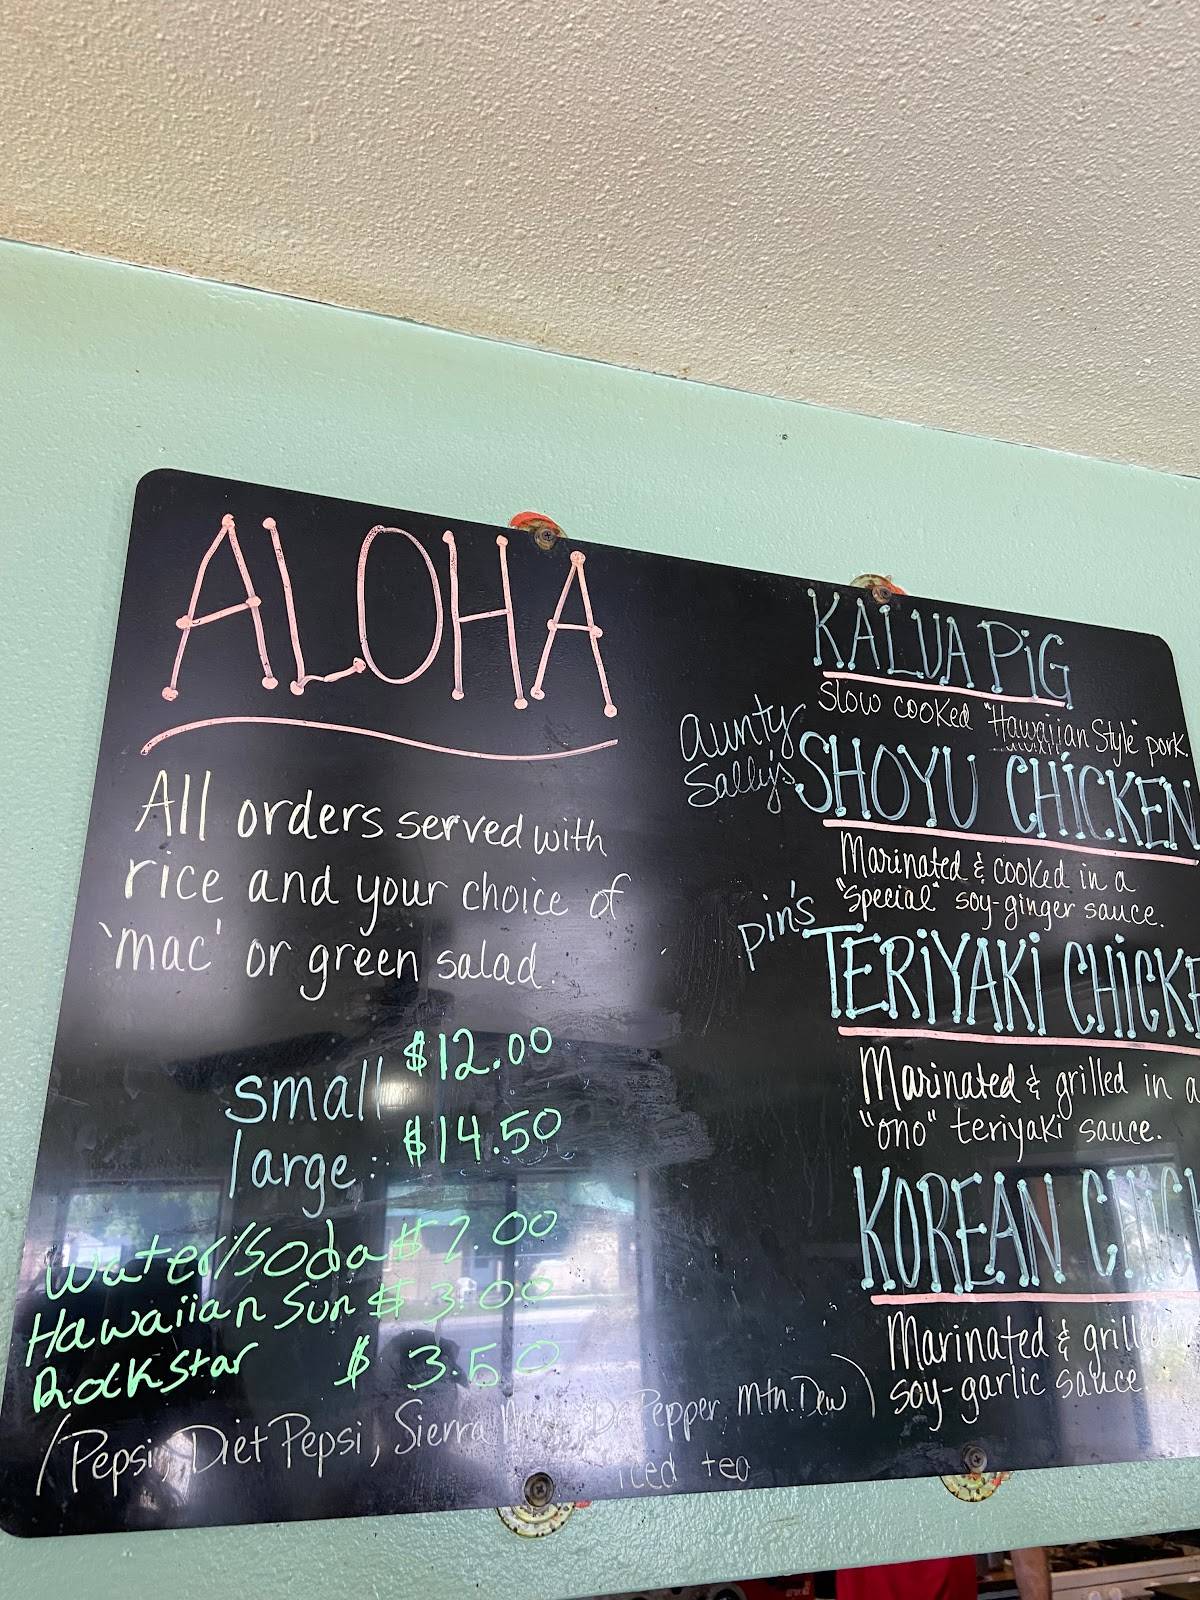 ALOHA
All orders served with
rice and your choice of
'mac' or green salad.
small $12.00
large: $14.50
Water/Soda $2.00
Hawaiian Sun $3.00
Rockstar $3.50
(Pepsi, Diet Pepsi, Sierra Dr Pepper, Mtn. Dew)
iced tea
KALUA PiG
Slow cooked "Hawaiian Style" pork
Aunty
Sally's SHOYU CHiCKEN
Marinated & cooked in a
"special" soy-ginger sauce.
pin's TERiYAKi CHiCKE
Marinated & grilled in a
"ono" teriyaki sauce.
KOREAN
Marinated & grill
soy-garlic sauce.